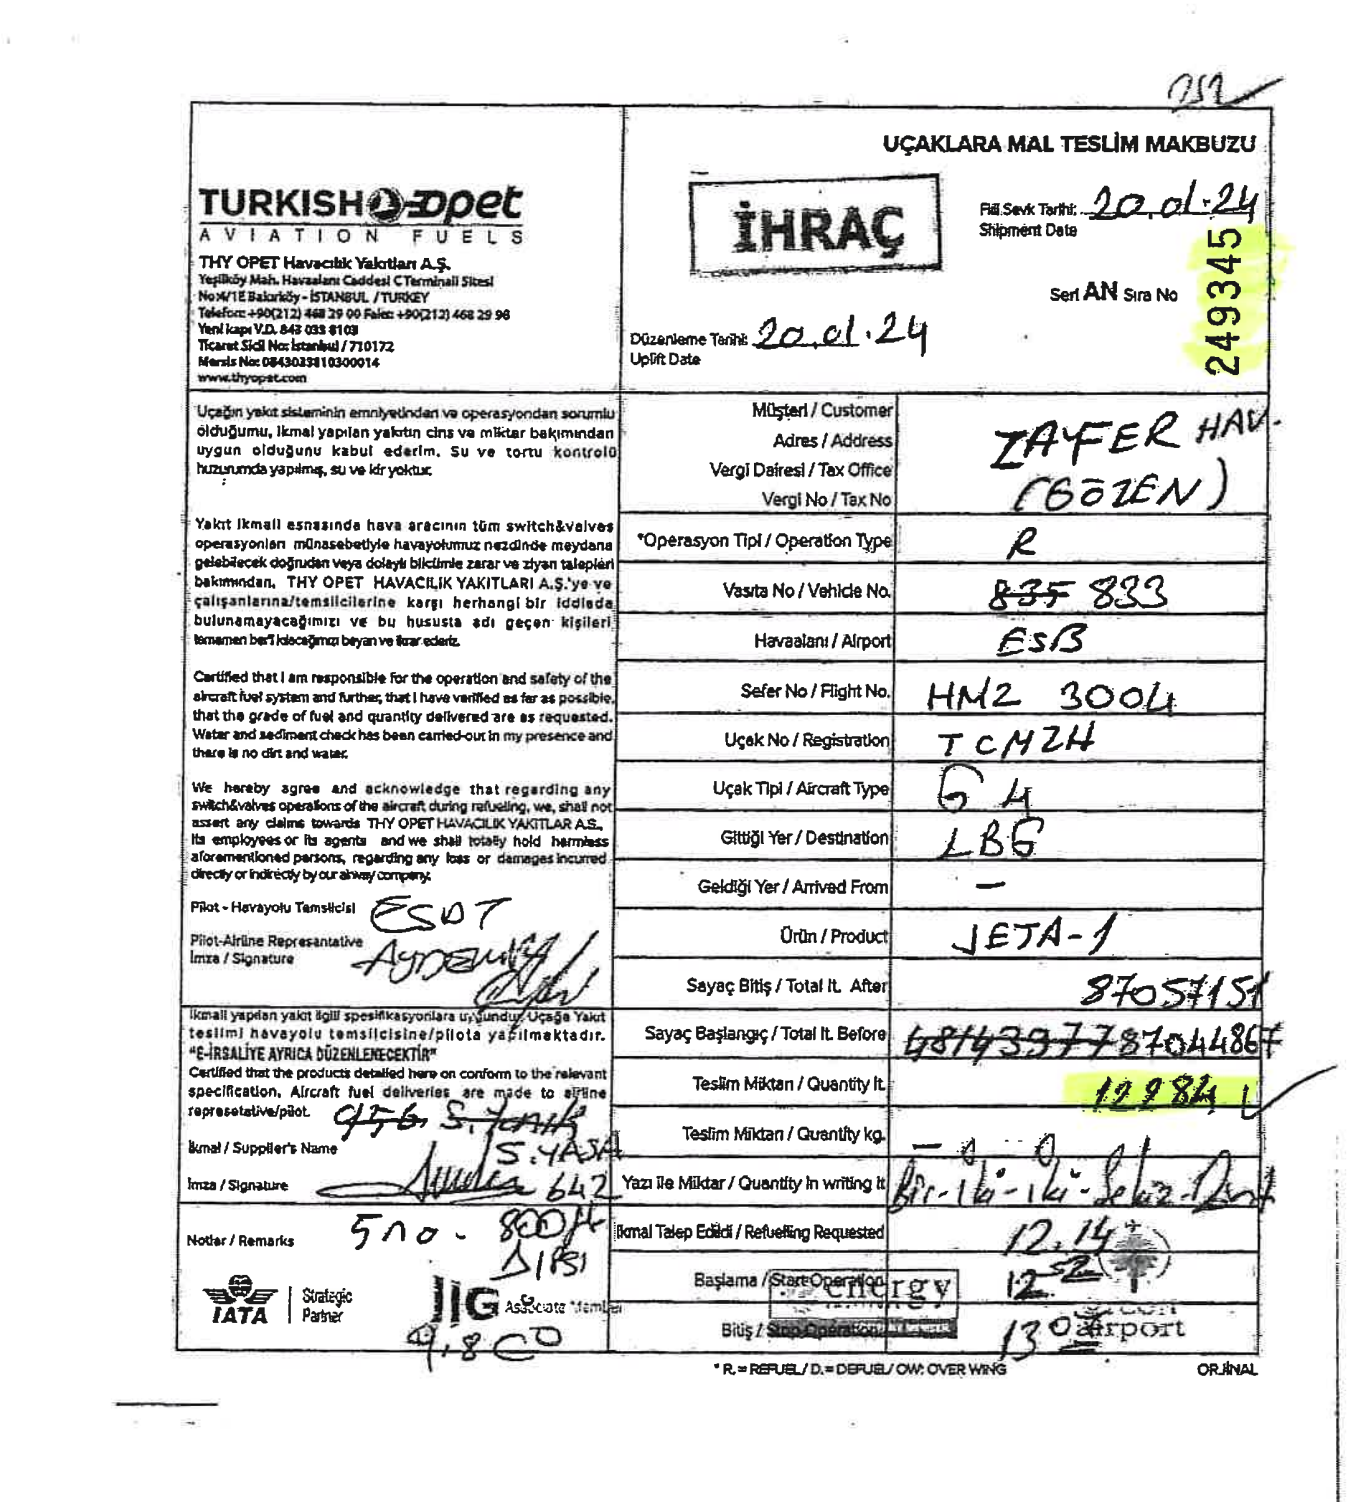 252
UÇAKLARA MAL TESLİM MAKBUZU
TURKISH opet
AVIATION FUELS
THY OPET Havacılık Yakıtları A.Ş.
Yeşilköy Mah. Havaalanı Caddesi C Terminali Sitesi
No:4/1E Bakırköy - İSTANBUL / TURKEY
Telefon: +90(212) 468 29 00 Faks: +90(212) 468 29 98
Yeni kapı V.D. 843 033 8103
Ticaret Sicil No: İstanbul / 710172
Mersis No: 0843033810300014
www.thyopet.com
İHRAÇ
Fiili Sevk Tarihi: 20.01.24
Shipment Date
Seri AN Sıra No
249345
Düzenleme Tarihi: 20.01.24
Uplift Date
Uçağın yakıt sisteminin emniyetinden ve operasyondan sorumlu
olduğumu, ikmal yapılan yakıtın cins ve miktar bakımından
uygun olduğunu kabul ederim. Su ve tortu kontrolü
huzurumda yapılmış, su ve kir yoktur.
Yakıt ikmali esnasında hava aracının tüm switch&valves
operasyonları münasebetiyle havayolumuz nezdinde meydana
gelebilecek doğrudan veya dolaylı bilcümle zarar ve ziyan talepleri
bakımından, THY OPET HAVACILIK YAKITLARI A.Ş.'ye ve
çalışanlarına/temsilcilerine karşı herhangi bir iddiada
bulunamayacağımızı ve bu hususta adı geçen kişileri
tamamen beri kılacağımızı beyan ve ikrar ederiz.
Certified that I am responsible for the operation and safety of the
aircraft fuel system and further, that I have verified as far as possible,
that the grade of fuel and quantity delivered are as requested.
Water and sediment check has been carried-out in my presence and
there is no dirt and water.
We hereby agree and acknowledge that regarding any
switch&valves operations of the aircraft during refueling, we, shall not
assert any claims towards THY OPET HAVACILIK YAKITLAR A.S.,
its employees or its agents and we shall totally hold harmless
aforementioned persons, regarding any loss or damages incurred
directly or indirectly by our airway company.
Pilot - Havayolu Temsilcisi ESDT
Pilot-Airline Represantative
İmza / Signature
İkmali yapılan yakıt ilgili spesifikasyonlara uygundur. Uçağa Yakıt
teslimi havayolu temsilcisine/pilota yapılmaktadır.
"E-İRSALİYE AYRICA DÜZENLENECEKTİR"
Certified that the products detailed here on conform to the relevant
specification. Aircraft fuel deliveries are made to airline
represetative/pilot.
İkmal / Supplier's Name S.YASA
İmza / Signature 642
Notlar / Remarks 5 no - 800 ft
Δ1PSI
IATA Strategic
Partner
JIG Associate Member
9.800
Müşteri / Customer ZAFER HAV.
Adres / Address
Vergi Dairesi / Tax Office (GÖZEN)
Vergi No / Tax No
*Operasyon Tipi / Operation Type R
Vasıta No / Vehicle No. 835 833
Havaalanı / Airport ESB
Sefer No / Flight No. HMZ 3004
Uçak No / Registration TCMZH
Uçak Tipi / Aircraft Type G 4
Gittiği Yer / Destination LBG
Geldiği Yer / Arrived From -
Ürün / Product JETA-1
Sayaç Bitiş / Total lt. After 87057151
Sayaç Başlangıç / Total lt. Before 48143377 87044867
Teslim Miktarı / Quantity lt. 12284
Teslim Miktarı / Quantity kg. -
Yazı ile Miktar / Quantity in writing lt Bir-iki-iki-Sekiz-Dört
İkmal Talep Edildi / Refuelling Requested 12.14
Başlama / Start Operation 12 52
Bitiş / Stop Operation 13 02
energy
airport
* R. = REFUEL / D. = DEFUEL / OW: OVER WING
ORJİNAL